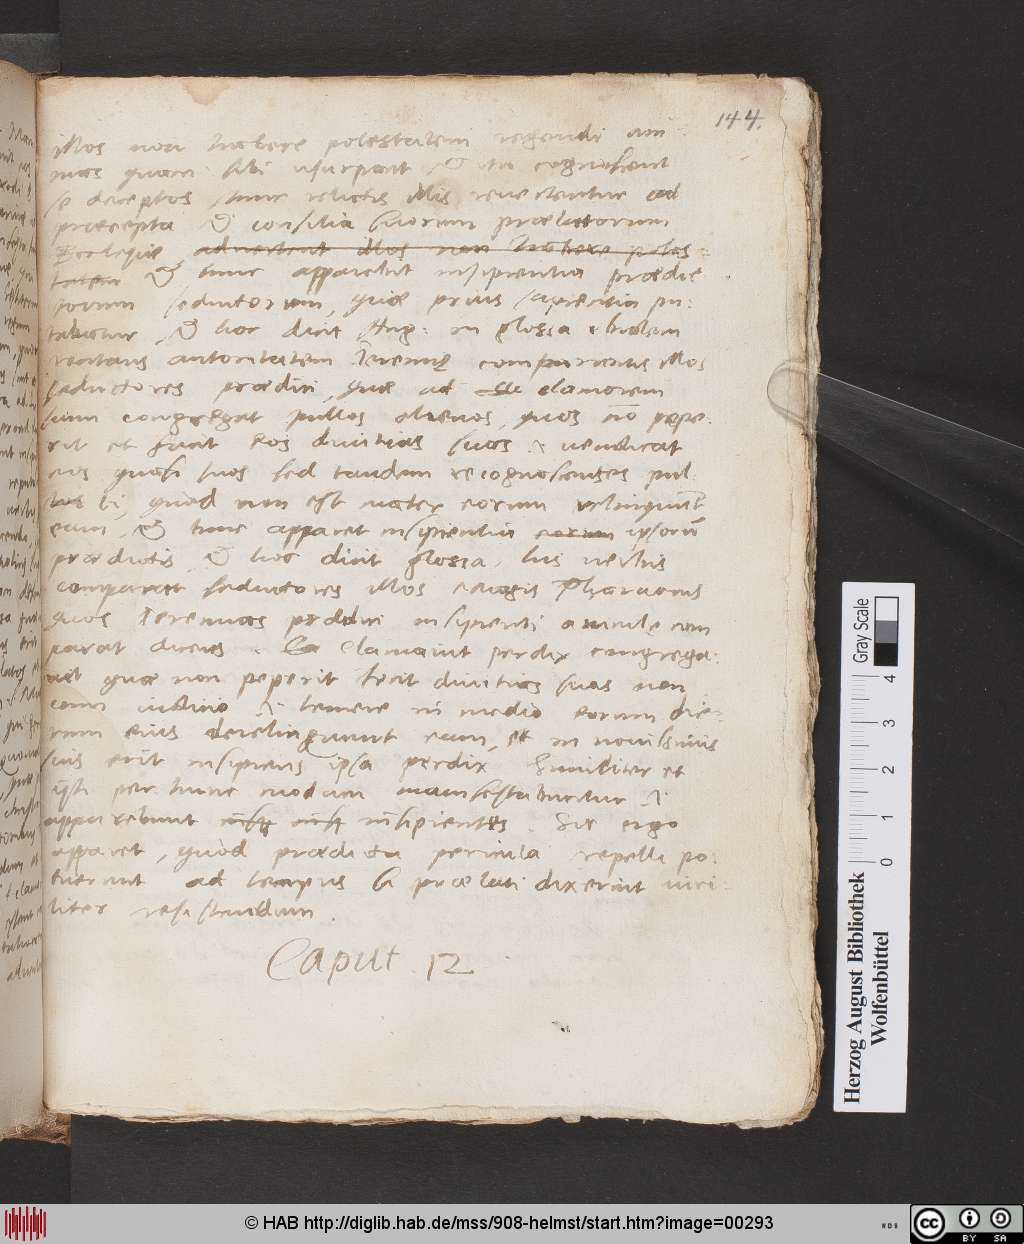 144.
illos non habere potestatem regendi ani
mas quam sibi usurpant, & ita cognoscent
se deceptos, tunc relictis illis revertentur ad
præcepta & consilia suorum prælatorum
Ecclesiæ advertent illos non habere potes-
tatem & tunc apparebit insipientia prædic
torum seductorum, quæ prius sapientia pu
tabatur, & hoc dicit Aug: in glossa
recitans autoritatem Ieremię comparantis illos
seductores perdici, quæ ad clamorem
suum congregat pullos alienos, quos nō pepe-
rit et facit eos divitias suas & vendicat
eos quasi suos sed tandem recognoscentes pul-
li, quod non est mater eorum relinquunt
eam, & tunc apparet insipientia eorum ipsorū
prædictis, & hoc dicit glossa, his verbis
comparat seductores illos magis Pharaonis
quos Ieremias perdici insipienti avicule com
parat dicens. Clamavit perdix congrega-
vit quæ non peperit fecit divitias suas non
cum iudicio & temere in medio eorum die-
rum eius derelinquunt eam, et in novissimis
suis erit insipiens ipsa perdix Similiter et
isti per hunc modum manifestabuntur &
apparebunt insipientes. Sic ergo
apparet, quod prædicta pericula repelli po-
tuerunt ad tempus si prælati dixerint viri-
liter resistendum.
Caput 12
Gray Scale
0 1 2 3 4
Herzog August Bibliothek
Wolfenbüttel
© HAB http://diglib.hab.de/mss/908-helmst/start.htm?image=00293
WDB
cc BY SA